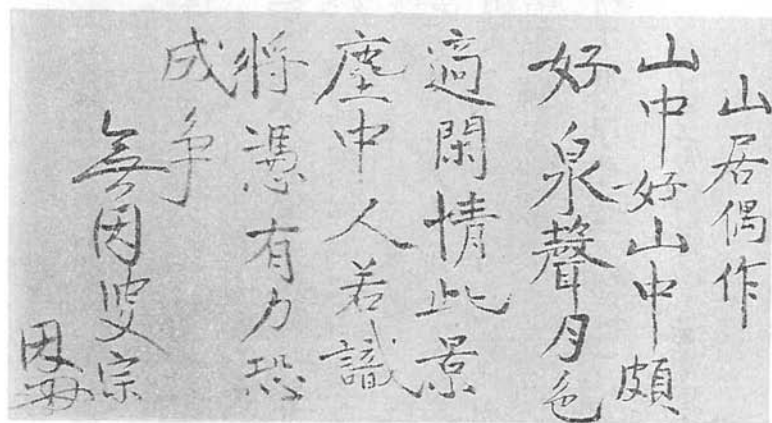 山居偶作
山中好山中頗
好泉聲月色
適閑情此景
塵中人若識
將憑有力恐
成爭
無因叟宗
因